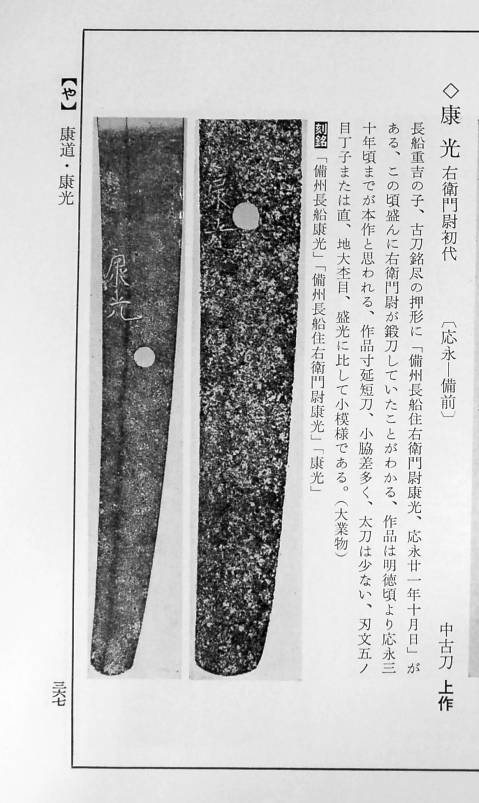 ◇康光 右衛門尉初代 〔応永―備前〕 中古刀 上作
長船重吉の子、古刀銘尽の押形に「備州長船住右衛門尉康光、応永廿一年十月日」が
ある、この頃盛んに右衛門尉が鍛刀していたことがわかる、作品は明徳頃より応永三
十年頃までが本作と思われる、作品寸延短刀、小脇差多く、太刀は少ない、刃文五ノ
目丁子または直、地大杢目、盛光に比して小模様である。（大業物）
刻銘「備州長船康光」「備州長船住右衛門尉康光」「康光」
康光
康光
【や】 康道・康光
三六七